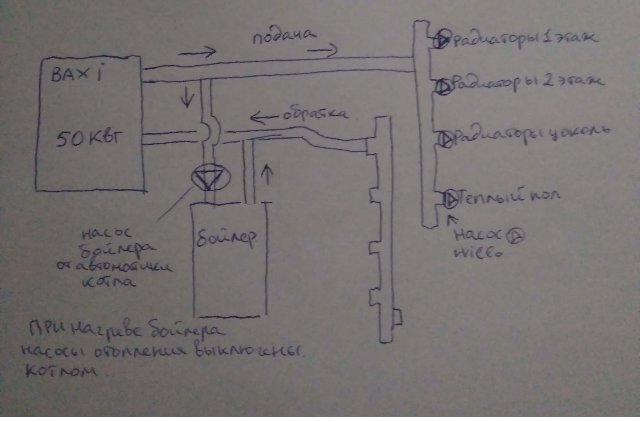 подача
радиаторы 1 этаж
BAXi
радиаторы 2 этаж
обратка
50 КВт
радиаторы цоколь
теплый пол
насос
бойлера
от автоматики
котла
бойлер
насос
wilo
ПРИ нагреве бойлера
насосы отопления выключены
котлом...